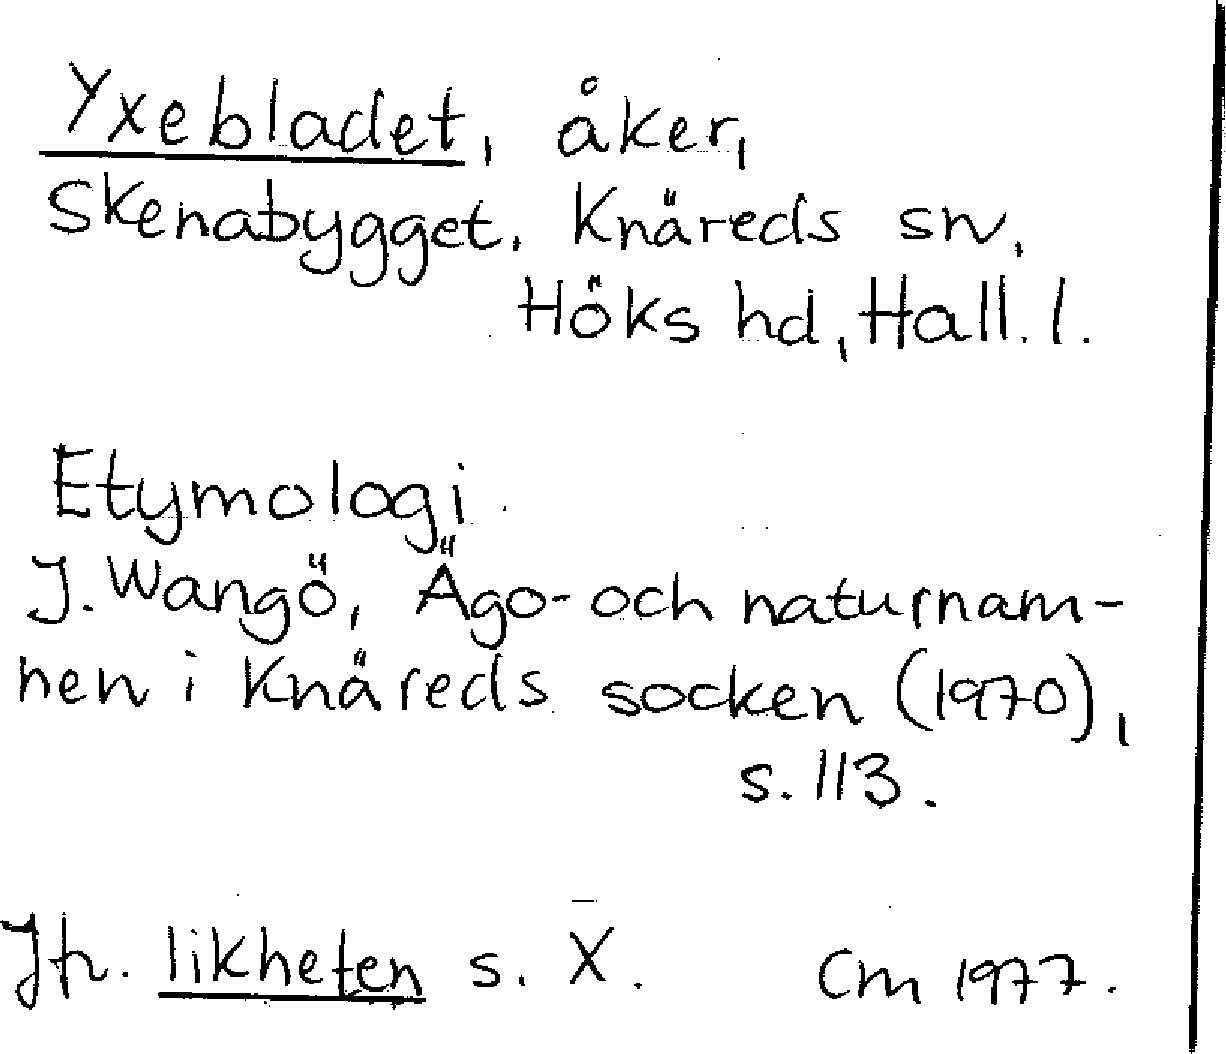 Yxebladet, åker,
Skenabygget. Knäreds sn,
Höks hd, Hall. l.
Etymologi
J. Wangö, Ägo- och naturnam-
nen i Knäreds socken (1970),
s. 113.
Jfr. likheten s. X. Cm 1977.